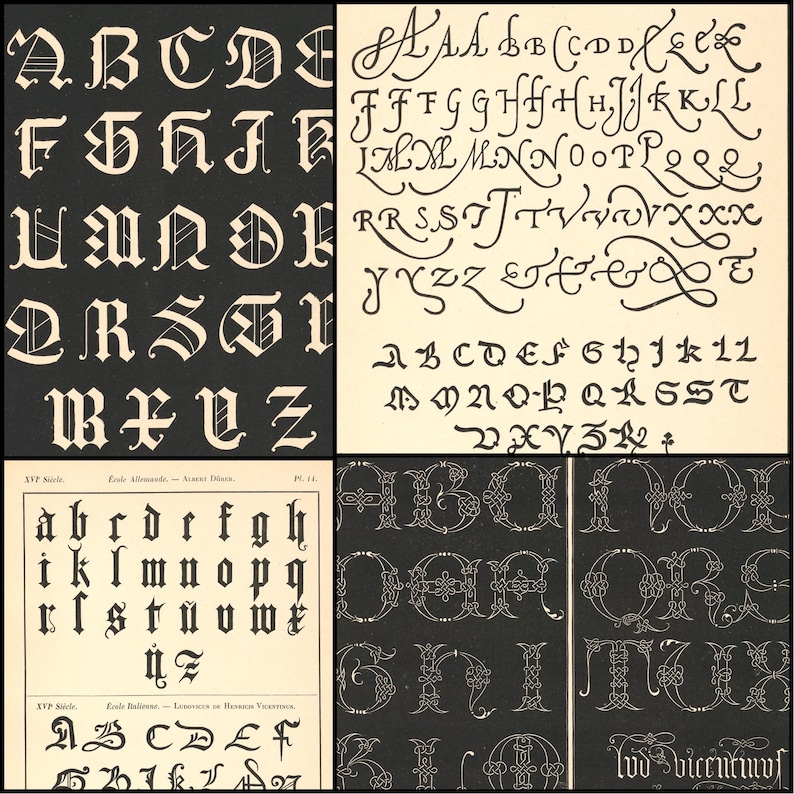 A B C D E
F G H I K
L M N O P
Q R S T U
W X Y Z
A A A B B C D D E E E E
F F F G G H H H H I J K K L L
L M M M N N O O P P Q Q Q
R R S S T T T V V V V X X X X
Y Y Z Z & & & & E
A B C D E F G H I K L L
M M N O P Q R S S T
V X Y Z R
XVIe Siècle. École Allemande. — Albert Dürer. Pl. 44.
a b c r d e f g h
i k l m n o p q
r ſ s t u v w x
y z
XVIe Siècle. École Italienne. — Ludovicus de Henricis Vicentinus.
A B C D E F
G H I K L M N
A B C
D E F
G H I
K L O
N O P
Q R S
T U X
lud vicentinus